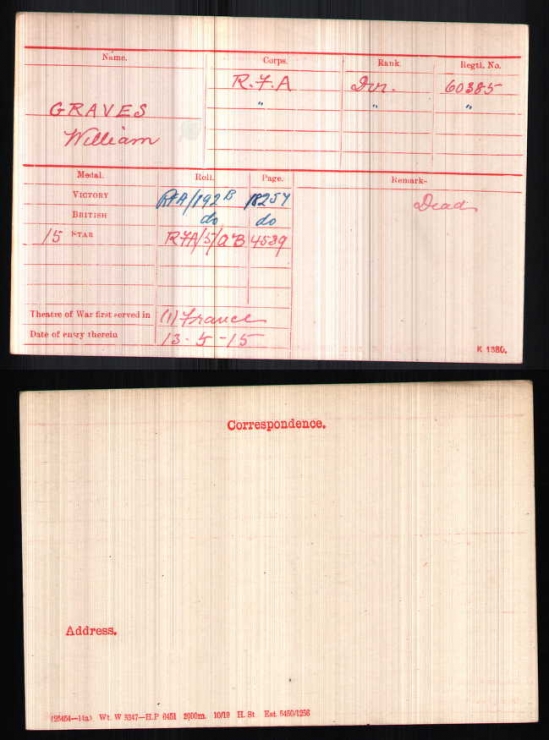 Name. Corps. Rank. Regtl. No.
R.F.A Dvr. 60385
GRAVES " " "
William
Medal. Roll. Page. Remark-
VICTORY RFA/192 B 18257 Dead
BRITISH do do
15 STAR RFA/5/ 4539
Theatre of War first served in (1) France
Date of entry therein 13-5-15
K 1380.
Correspondence.
Address.
Wt. W 5347—H.P 2500m. 10/19 H. St